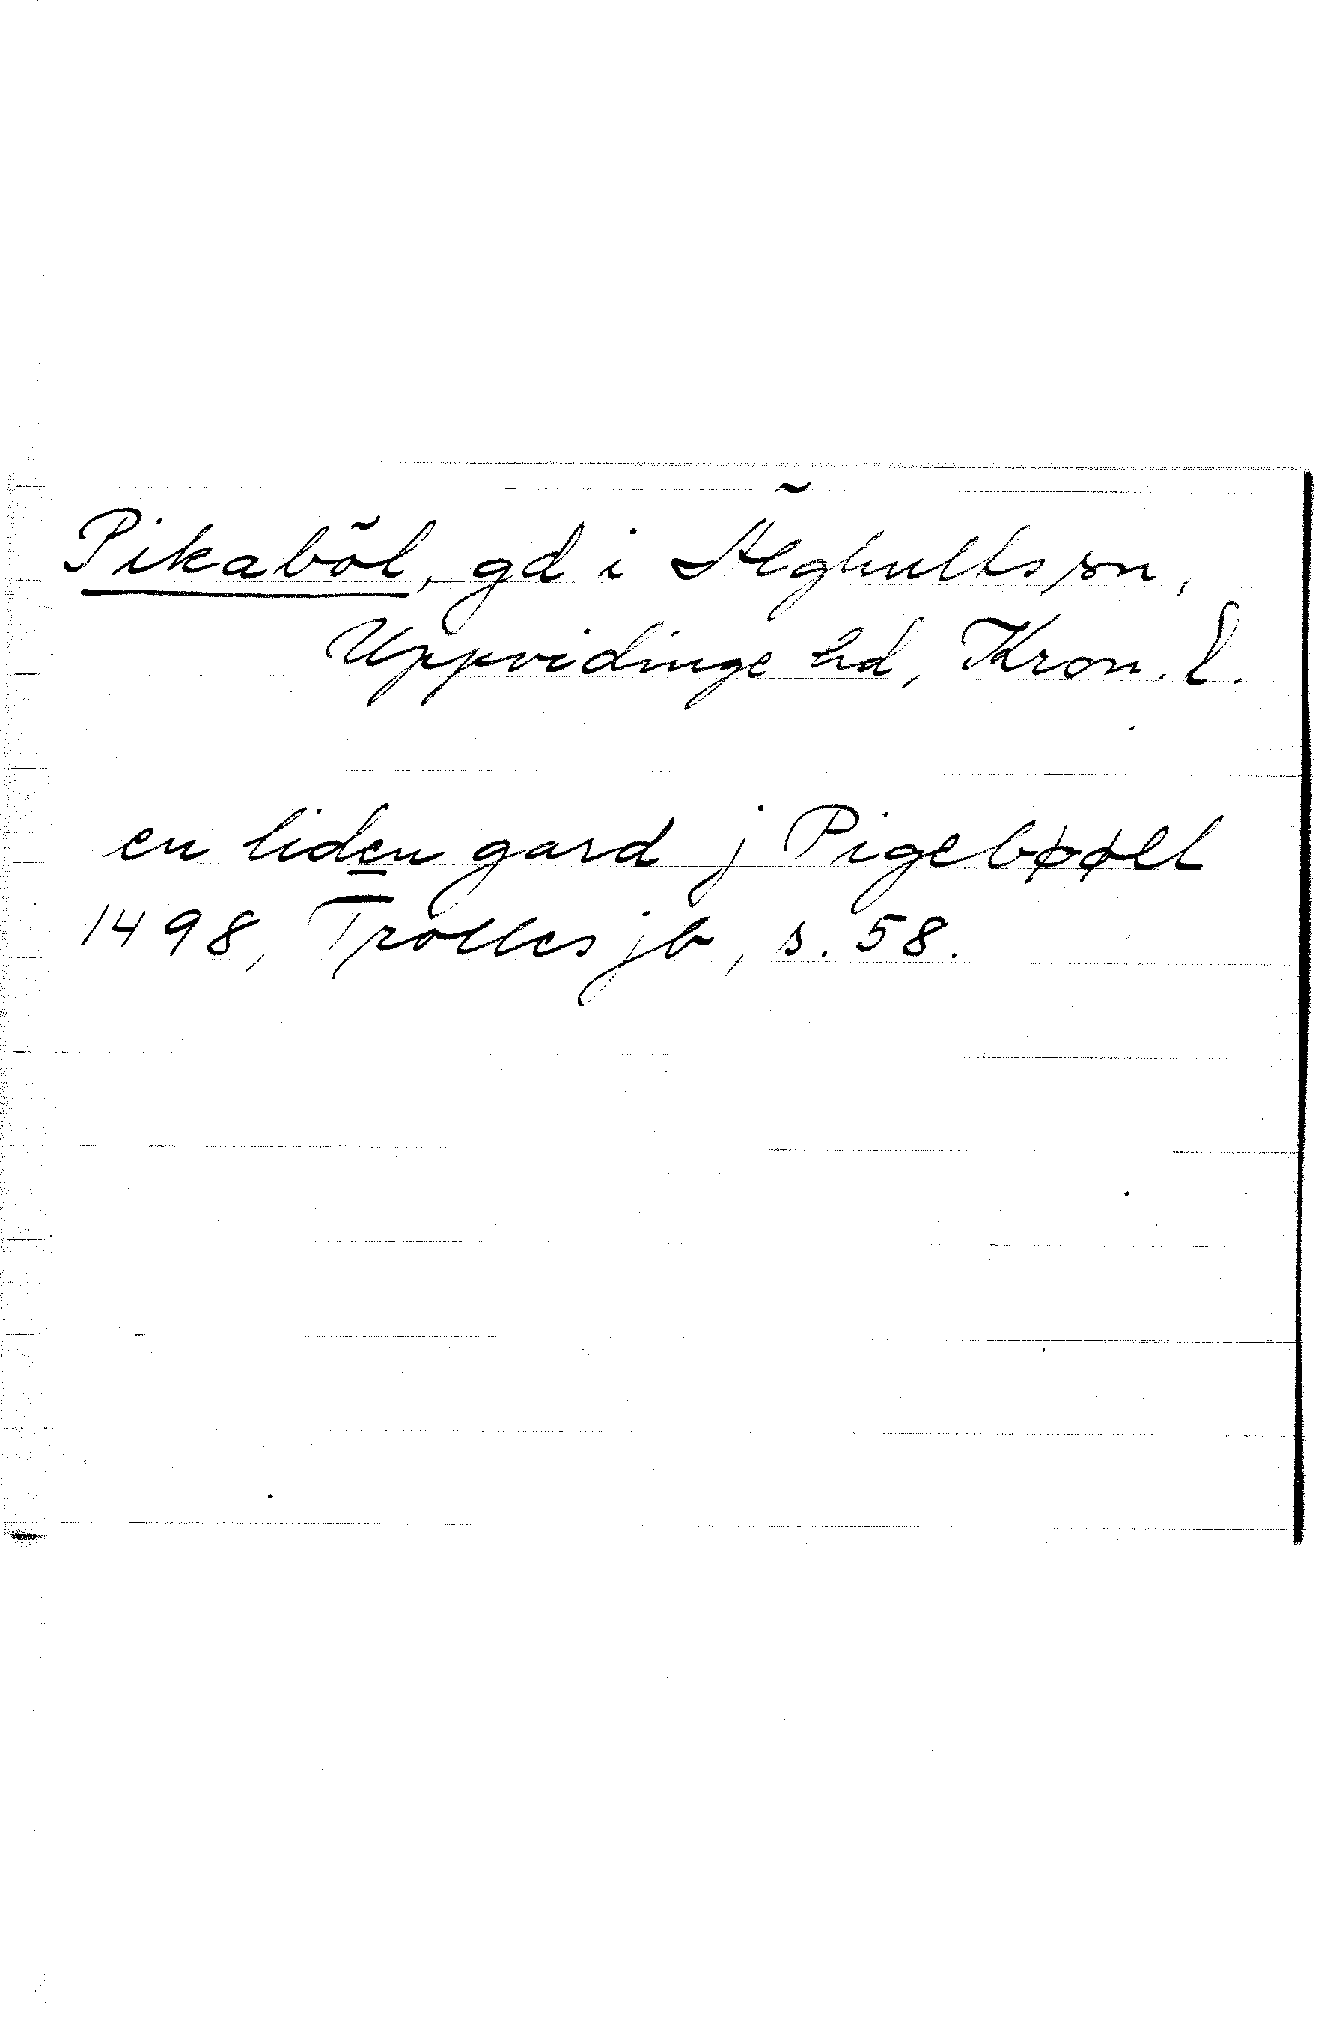 Pikaböl, gd i Älghults sn,
Uppvidinge hd, Kron. l.
en liden gard j Pigebøøll
1498, Trolles jb, s. 58.